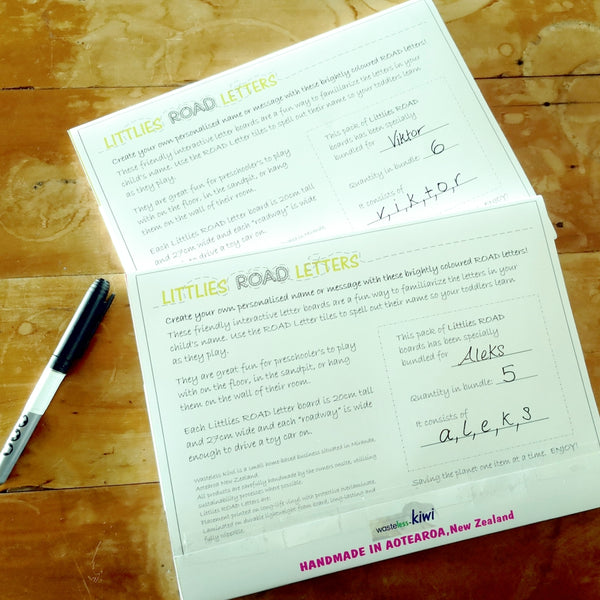 LITTLIES ROAD LETTERS
Create your own personalised name or message with these brightly coloured ROAD letters!
These friendly interactive letter boards are a fun way to familiarize the letters in your
child's name. Use the ROAD Letter tiles to spell out their name so your toddlers learn
as they play.
They are great fun for preschooler's to play
with on the floor, in the sandpit, or hang
them on the wall of their room.
Each Littlies ROAD letter board is 20cm tall
and 27cm wide and each "roadway" is wide
to drive a toy car on.
This pack of Littlies ROAD
boards has been specially
bundled for Viktor
Quantity in bundle: 6
It consists of
v, i, k, t, o, r
ENJOY!
LITTLIES ROAD LETTERS
Create your own personalised name or message with these brightly coloured ROAD letters!
These friendly interactive letter boards are a fun way to familiarize the letters in your
child's name. Use the ROAD Letter tiles to spell out their name so your toddlers learn
as they play.
They are great fun for preschooler's to play
with on the floor, in the sandpit, or hang
them on the wall of their room.
Each Littlies ROAD letter board is 20cm tall
and 27cm wide and each "roadway" is wide
enough to drive a toy car on.
Wasteless Kiwi is a small home based business situated in Miranda,
Aotearoa New Zealand.
All products are carefully handmade by the owners onsite, utilising
sustainability processes where possible.
Littlies ROAD Letters are:
Placement printed on long-life vinyl, wax protective overlaminate,
Laminated on durable lightweight foam board, long-lasting and
fully wipeable.
This pack of Littlies ROAD
boards has been specially
bundled for Aleks
Quantity in bundle: 5
It consists of
a, l, e, k, s
Saving the planet one item at a time. ENJOY!
wasteless-kiwi
HANDMADE IN AOTEAROA, New Zealand